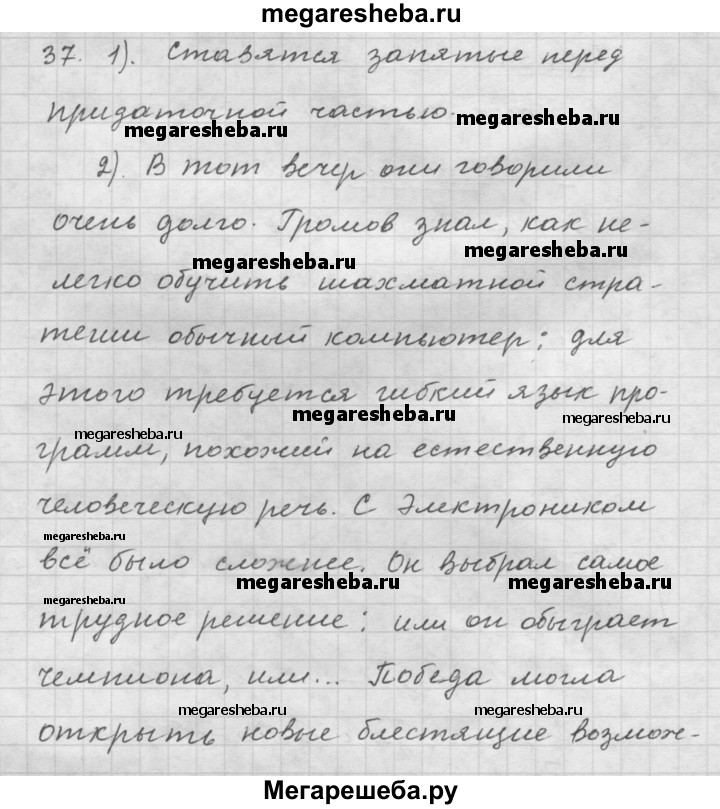 megaresheba.ru
37. 1). Ставятся запятые перед
придаточной частью.
megaresheba.ru
megaresheba.ru
2). В тот вечер они говорили
очень долго. Громов знал, как не-
megaresheba.ru
megaresheba.ru
легко обучить шахматной стра-
тегии обычный компьютер; для
этого требуется гибкий язык про-
megaresheba.ru
megaresheba.ru
megaresheba.ru
грамм, похожий на естественную
человеческую речь. С Электроником
megaresheba.ru
всё было сложнее. Он выбрал самое
megaresheba.ru
megaresheba.ru
megaresheba.ru
трудное решение: или он обыграет
чемпиона, или... Победа могла
megaresheba.ru
megaresheba.ru
открыть новые блестящие возмож-
Мегарешеба.ру